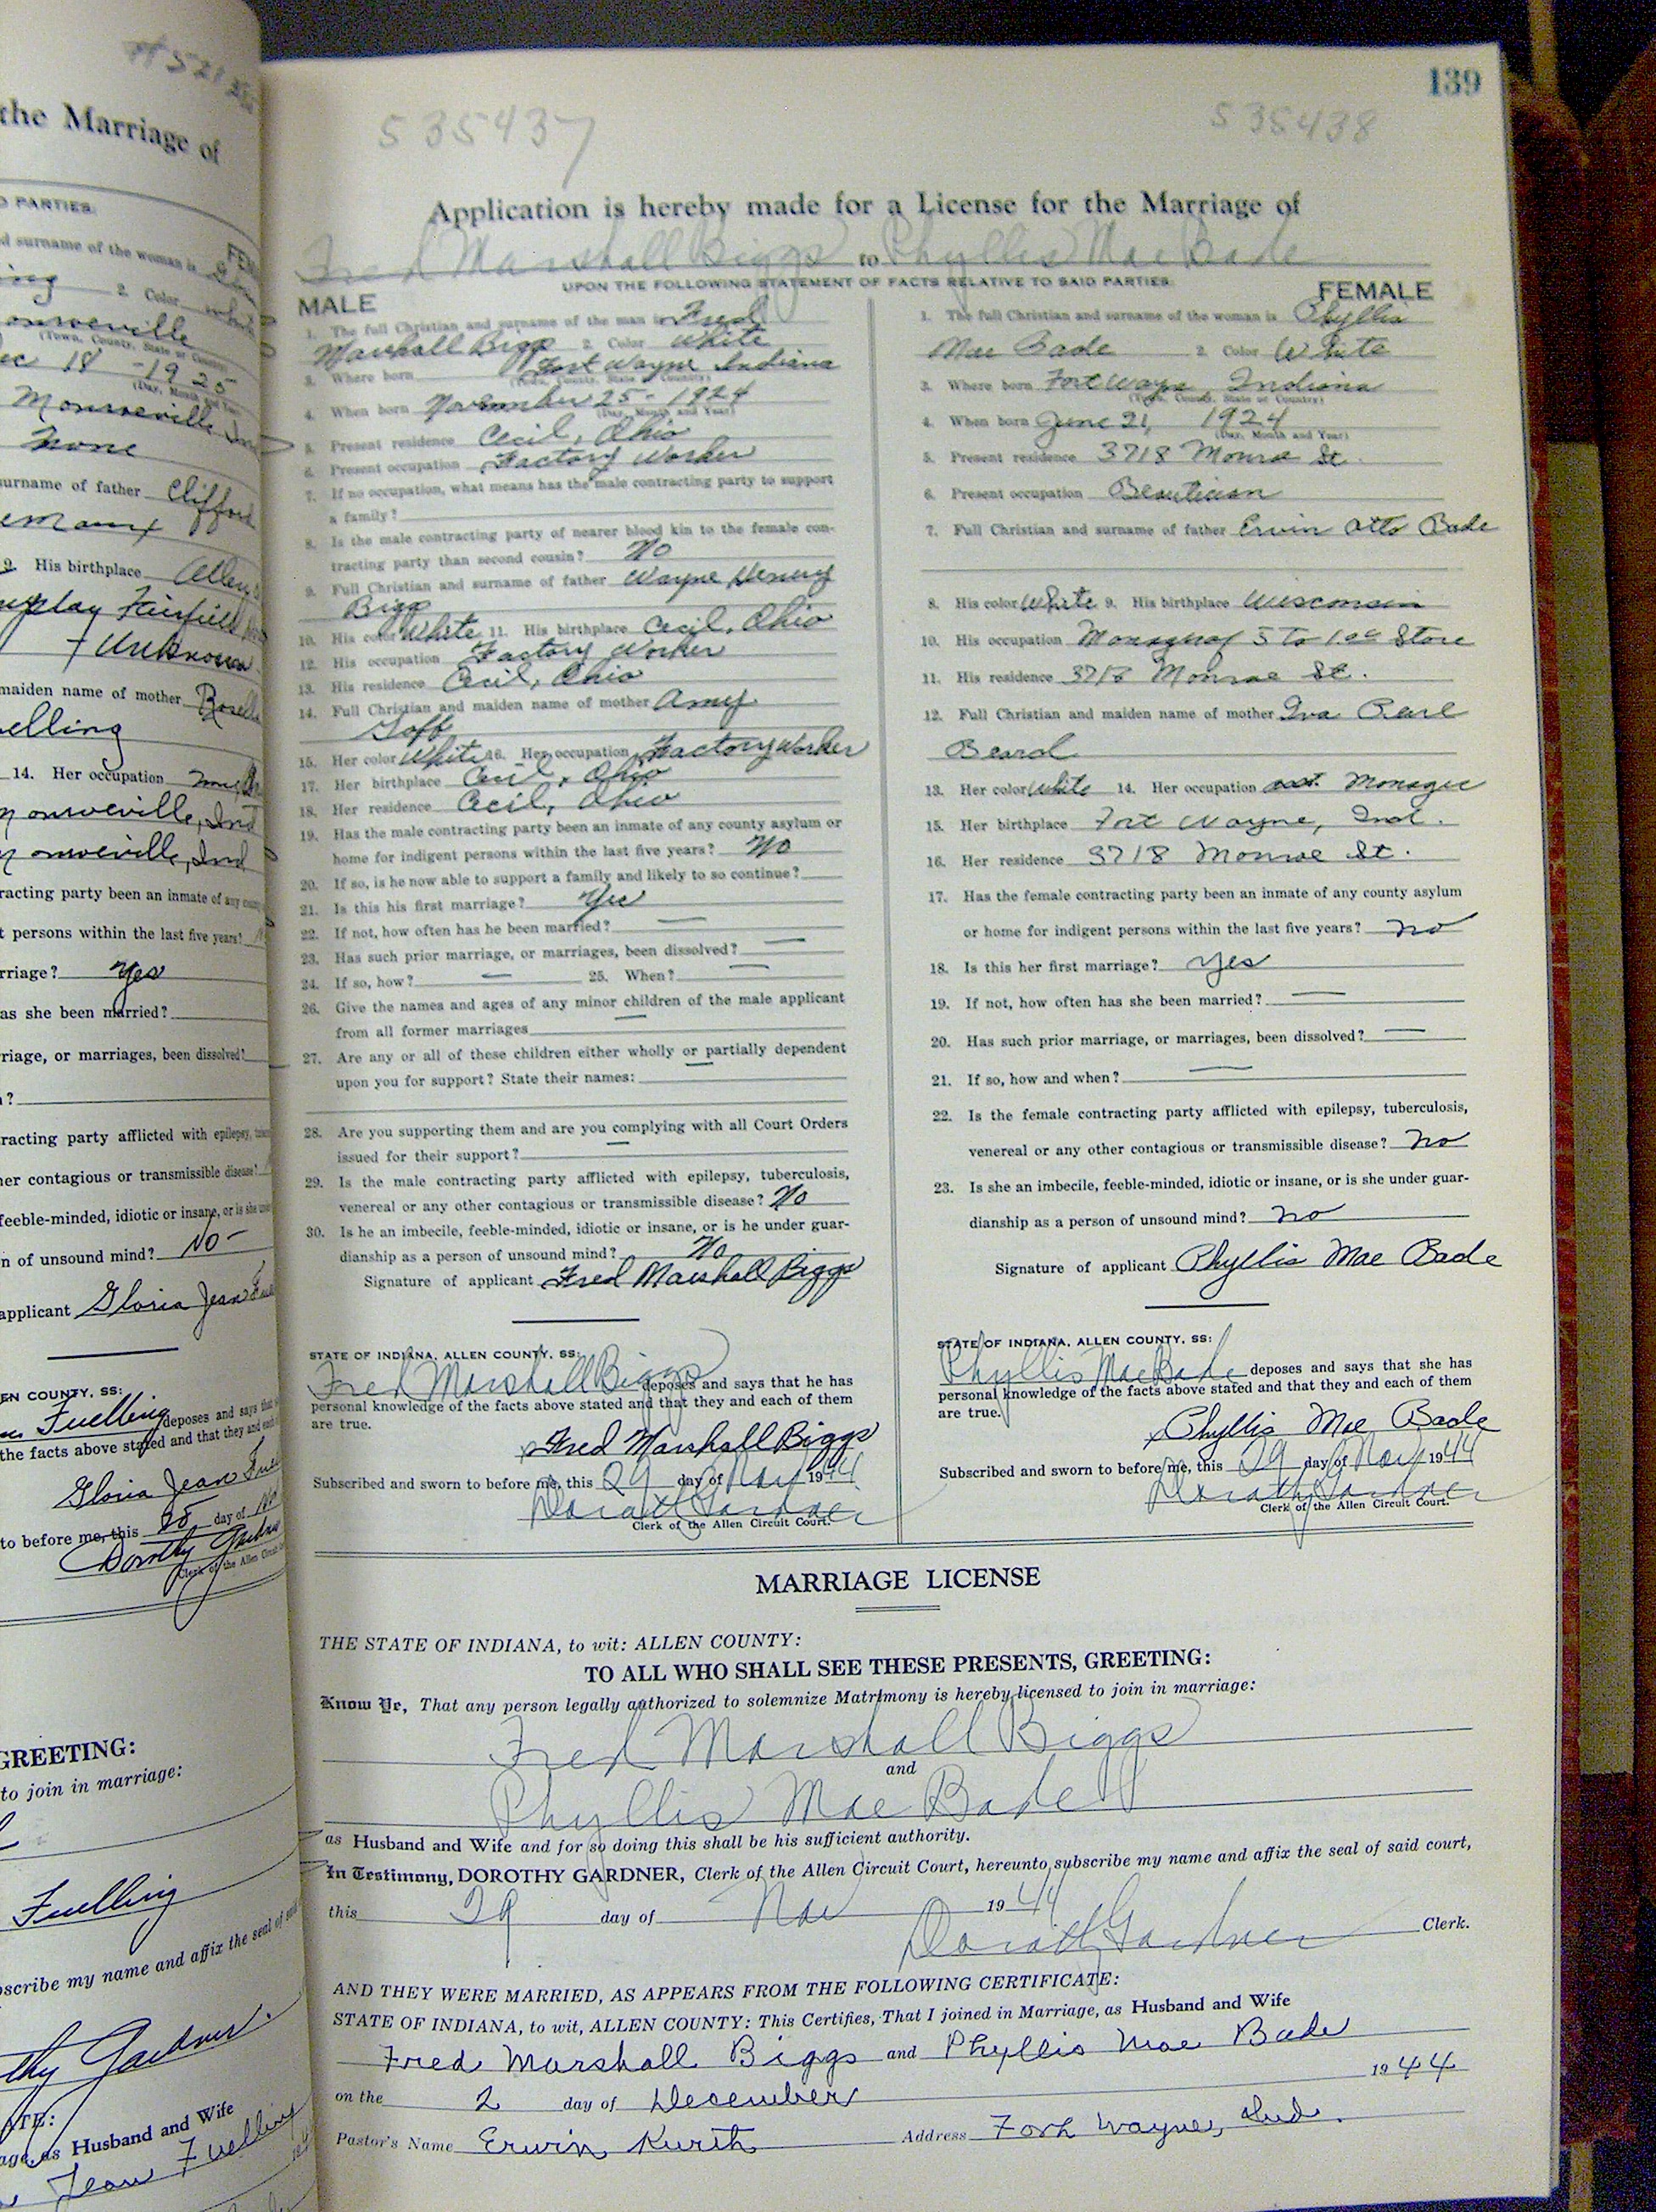 the Marriage of
PARTIES.
surname of the woman is
2. Color
(Town, County, State or Country)
Dec 18 - 1925
Monroeville, Ind
None
surname of father Clifford
9. His birthplace Allen
Fairfield
Unknown
maiden name of mother
14. Her occupation
Monroeville, Ind
Monroeville, Ind
racting party been an inmate of any
t persons within the last five years?
rriage? Yes
as she been married?
riage, or marriages, been dissolved?
?
racting party afflicted with epilepsy,
er contagious or transmissible disease?
feeble-minded, idiotic or insane, or is she
n of unsound mind? No -
applicant Gloria Jean
EN COUNTY, SS:
Fuelling deposes and says that
the facts above stated and that they and each
Gloria Jean
to before me, this 28 day of
Dorothy Gardner
Clerk of the Allen Circuit
GREETING:
to join in marriage:
Fuelling
bscribe my name and affix the seal of said
thy Gardner
ATE:
as Husband and Wife
Jean Fuelling
139
535437 535438
Application is hereby made for a License for the Marriage of
Fred Marshall Biggs to Phyllis Mae Bade
UPON THE FOLLOWING STATEMENT OF FACTS RELATIVE TO SAID PARTIES.
MALE
1. The full Christian and surname of the man is Fred
Marshall Biggs 2. Color White
3. Where born Fort Wayne Indiana
(Town, County, State or Country)
4. When born November 25 - 1924
(Day, Month and Year)
5. Present residence Cecil, Ohio
6. Present occupation Factory Worker
7. If no occupation, what means has the male contracting party to support
a family?
8. Is the male contracting party of nearer blood kin to the female con-
tracting party than second cousin? No
9. Full Christian and surname of father Wayne Henry
Biggs
10. His color White 11. His birthplace Cecil, Ohio
12. His occupation Factory Worker
13. His residence Cecil, Ohio
14. Full Christian and maiden name of mother Amy
Goff
15. Her color White 16. Her occupation Factory Worker
17. Her birthplace Cecil, Ohio
18. Her residence Cecil, Ohio
19. Has the male contracting party been an inmate of any county asylum or
home for indigent persons within the last five years? No
20. If so, is he now able to support a family and likely to so continue?
21. Is this his first marriage? Yes
22. If not, how often has he been married? —
23. Has such prior marriage, or marriages, been dissolved? —
24. If so, how? — 25. When? —
26. Give the names and ages of any minor children of the male applicant
from all former marriages —
27. Are any or all of these children either wholly or partially dependent
upon you for support? State their names: —
28. Are you supporting them and are you complying with all Court Orders
issued for their support? —
29. Is the male contracting party afflicted with epilepsy, tuberculosis,
venereal or any other contagious or transmissible disease? No
30. Is he an imbecile, feeble-minded, idiotic or insane, or is he under guar-
dianship as a person of unsound mind? No
Signature of applicant Fred Marshall Biggs
STATE OF INDIANA, ALLEN COUNTY, SS:
Fred Marshall Biggs deposes and says that he has
personal knowledge of the facts above stated and that they and each of them
are true.
x Fred Marshall Biggs
Subscribed and sworn to before me, this 29 day of Nov 1944
Dorothy Gardner
Clerk of the Allen Circuit Court.
FEMALE
1. The full Christian and surname of the woman is Phyllis
Mae Bade 2. Color White
3. Where born Fort Wayne, Indiana
(Town, County, State or Country)
4. When born June 21, 1924
(Day, Month and Year)
5. Present residence 3718 Monroe St.
6. Present occupation Beautician
7. Full Christian and surname of father Ervin Otto Bade
8. His color White 9. His birthplace Wisconsin
10. His occupation Manager of 5 to 1.00 Store
11. His residence 3718 Monroe St.
12. Full Christian and maiden name of mother Iva Pearl
Beard
13. Her color White 14. Her occupation asst. Manager
15. Her birthplace Fort Wayne, Ind.
16. Her residence 3718 Monroe St.
17. Has the female contracting party been an inmate of any county asylum
or home for indigent persons within the last five years? no
18. Is this her first marriage? yes
19. If not, how often has she been married? —
20. Has such prior marriage, or marriages, been dissolved? —
21. If so, how and when? —
22. Is the female contracting party afflicted with epilepsy, tuberculosis,
venereal or any other contagious or transmissible disease? no
23. Is she an imbecile, feeble-minded, idiotic or insane, or is she under guar-
dianship as a person of unsound mind? no
Signature of applicant Phyllis Mae Bade
STATE OF INDIANA, ALLEN COUNTY, SS:
Phyllis Mae Bade deposes and says that she has
personal knowledge of the facts above stated and that they and each of them
are true.
x Phyllis Mae Bade
Subscribed and sworn to before me, this 29 day of Nov 1944
Dorothy Gardner
Clerk of the Allen Circuit Court.
MARRIAGE LICENSE
THE STATE OF INDIANA, to wit: ALLEN COUNTY:
TO ALL WHO SHALL SEE THESE PRESENTS, GREETING:
Know Ye, That any person legally authorized to solemnize Matrimony is hereby licensed to join in marriage:
Fred Marshall Biggs
and
Phyllis Mae Bade
as Husband and Wife and for so doing this shall be his sufficient authority.
In Testimony, DOROTHY GARDNER, Clerk of the Allen Circuit Court, hereunto subscribe my name and affix the seal of said court,
this 29 day of Nov 1944
Dorothy Gardner Clerk.
AND THEY WERE MARRIED, AS APPEARS FROM THE FOLLOWING CERTIFICATE:
STATE OF INDIANA, to wit, ALLEN COUNTY: This Certifies, That I joined in Marriage, as Husband and Wife
Fred Marshall Biggs and Phyllis Mae Bade
on the 2 day of December 1944
Pastor's Name Erwin Kurth Address Fort Wayne, Ind.